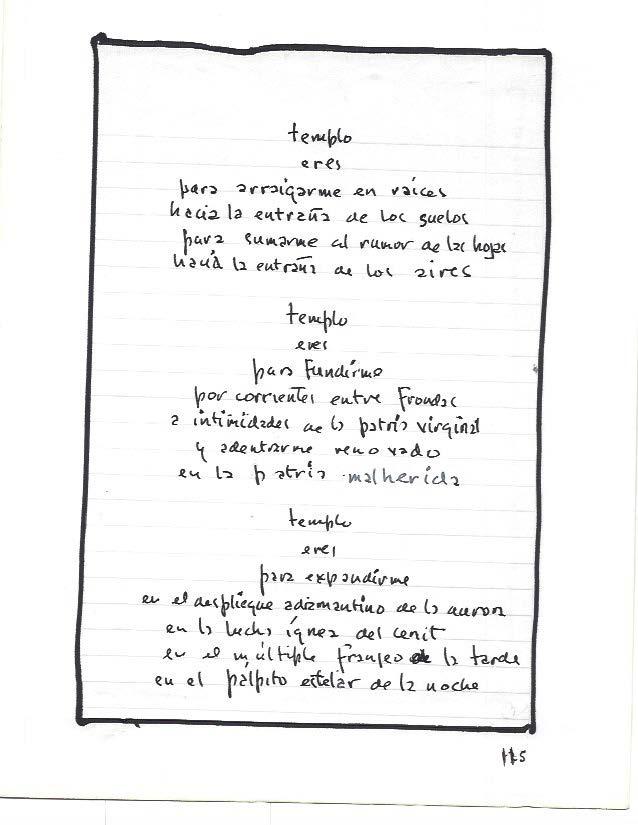 templo
eres
para arraigarme en raíces
hacia la entraña de los suelos
para sumarme al rumor de las hojas
hacia la entraña de los aires
templo
eres
para fundirme
por corrientes entre frondas
a intimidades de la patria virginal
y adentrarme renovado
en la patria malherida
templo
eres
para expandirme
en el despliegue adiamantino de la aurora
en la lucha ígnea del cenit
en el múltiple franjeo de la tarde
en el pálpito estelar de la noche
115